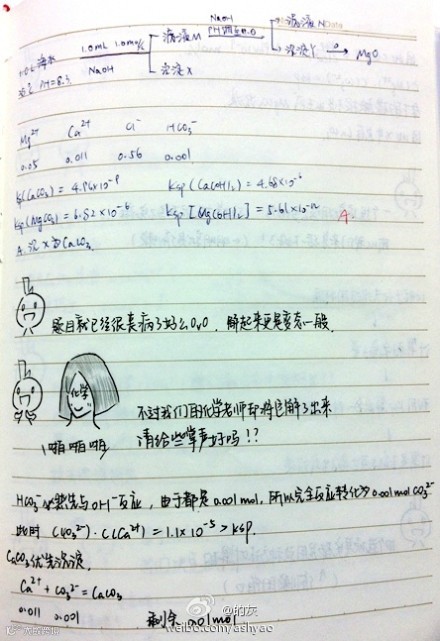 1.0L 海水 1.0mL 1.0mol/L NaOH 滤液M NaOH PH调至11.0 滤液N Data
温度 PH=8.3 沉淀X 沉淀Y △ MgO
Mg²⁺ Ca²⁺ Cl⁻ HCO₃⁻
0.05 0.011 0.56 0.001
Ksp(CaCO₃) = 4.96×10⁻⁹ Ksp(Ca(OH)₂) = 4.68×10⁻⁶
Ksp(MgCO₃) = 6.82×10⁻⁶ Ksp[Mg(OH)₂] = 5.61×10⁻¹² A
A. 沉X为CaCO₃
题目就已经很美病了好么OvO, 解起来更是变态一般.
化学
啪啪啪
不过我们的化学老师却将它解了出来
请给些掌声好吗!?
HCO₃⁻ 先与OH⁻反应, 由于都是0.001mol, 所以完全反应转化为0.001mol CO₃²⁻
此时 (CO₃²⁻)·C(Ca²⁺) = 1.1×10⁻⁵ > Ksp.
CaCO₃优先沉淀.
Ca²⁺ + CO₃²⁻ = CaCO₃
0.011 0.001 剩余 0.01mol
@的灰
weibo.com/ashyao